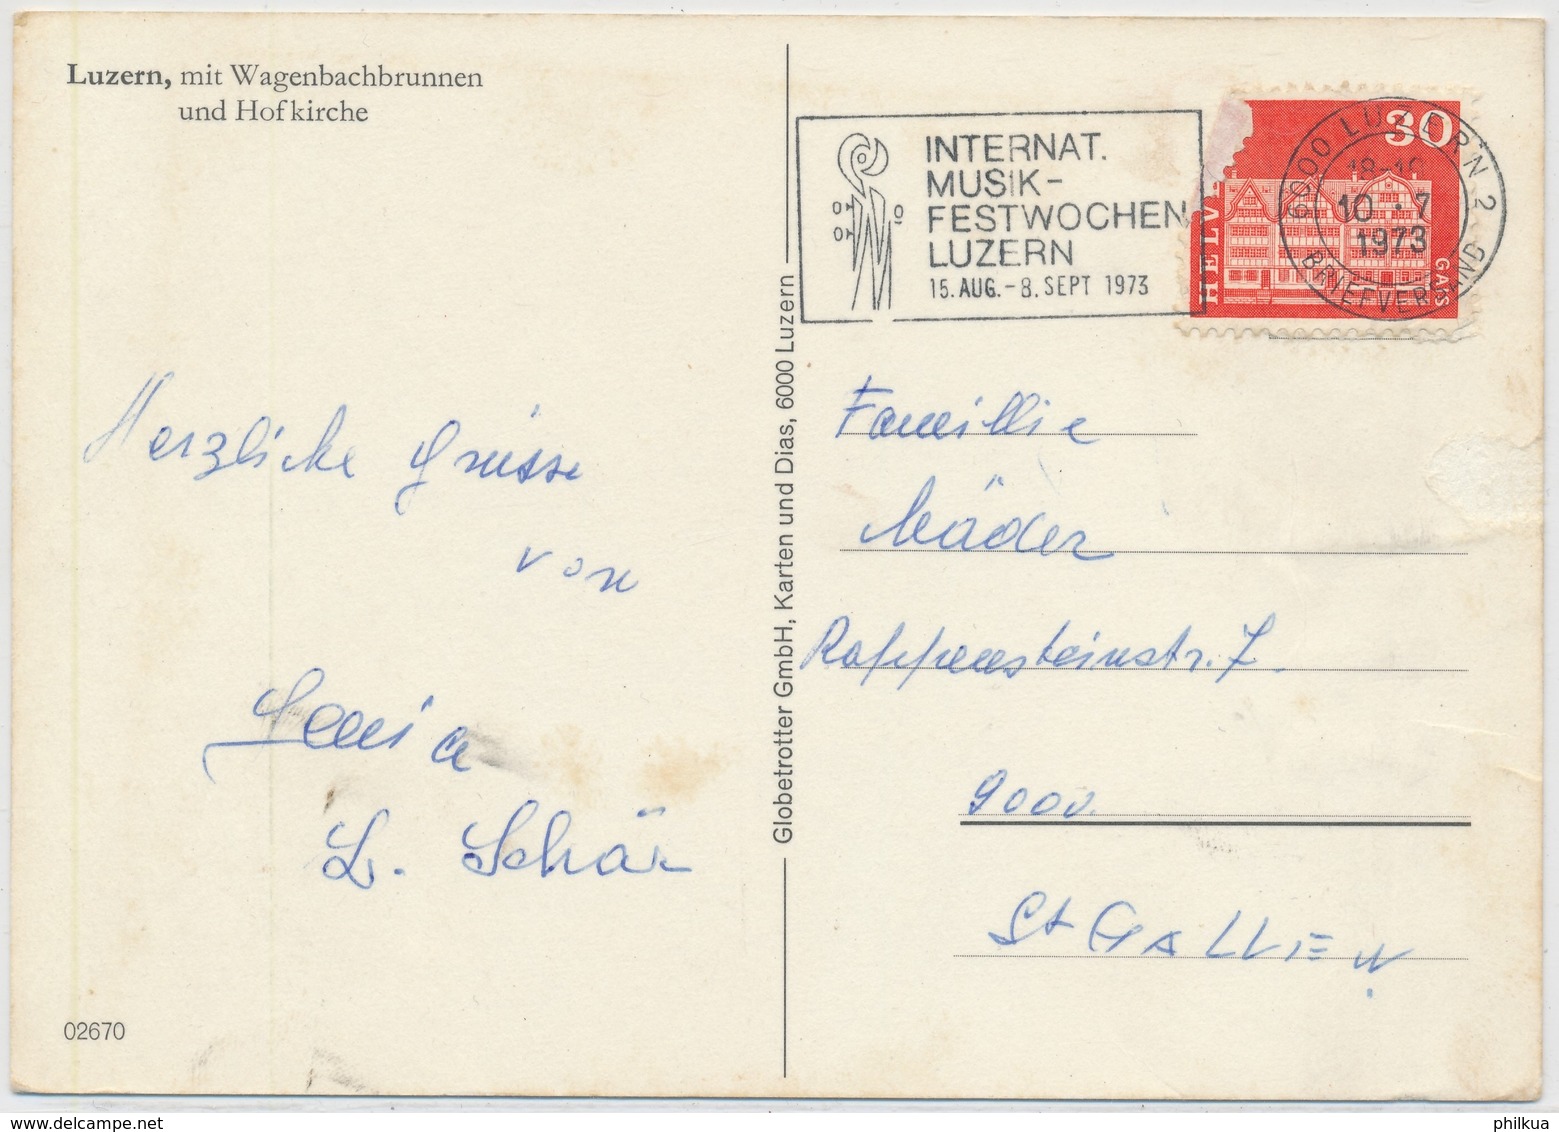 Luzern, mit Wagenbachbrunnen
und Hofkirche
INTERNAT.
MUSIK-
FESTWOCHEN
LUZERN
15. AUG. - 8. SEPT 1973
HELV
30
GAIS
6000 LUZERN 2
18-19
10.7
1973
BRIEFVERSAND
Herzliche Grüsse
von
L. Schär
Familie
Mäder
Rappensteinstr. 7.
9000
St GALLEN
Globetrotter GmbH, Karten und Dias, 6000 Luzern
02670
philkua